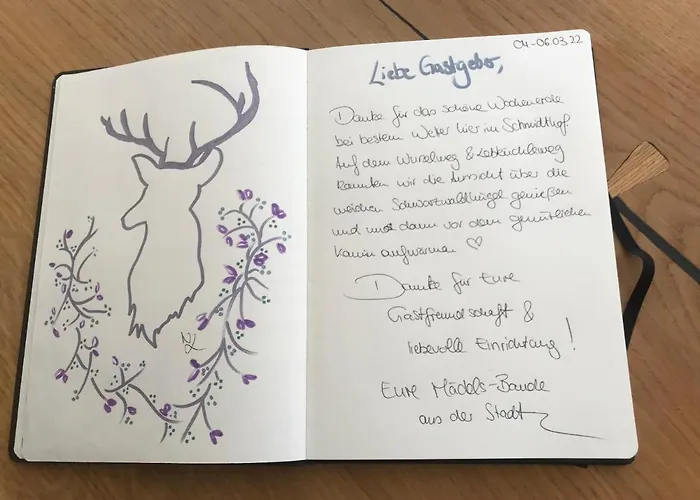 04-06.03.22
Liebe Gastgeber,
Danke für das schöne Wochenende
bei bestem Wetter hier im Schmidthof
Auf dem Wurzelweg & Lebküchleweg
konnten wir die Aussicht über die
weichen Schwarzwaldhügel genießen
und uns dann vor dem gemütlichen
Kamin aufwärmen ♡
Danke für Eure
Gastfreundschaft &
liebevolle Einrichtung!
Eure Mädels-Bande
aus der Stadt